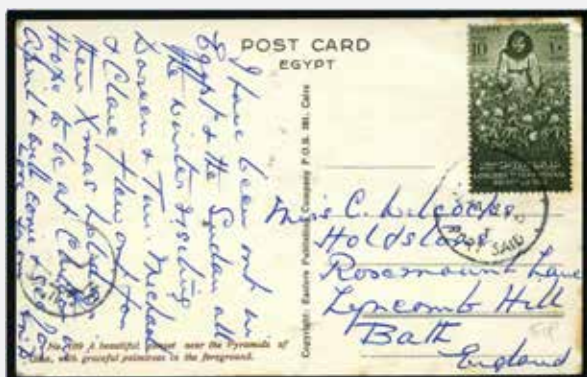 POST CARD
EGYPT
I have been out in
Egypt & the Sudan all
the winter visiting
Doreen & Tim. Michael
& Clare flew out for
their Xmas holiday
Hope to be at
April & will come & see you
Love from
No. 109 A beautiful sunset near the Pyramids of
Giza, with graceful palmtrees in the foreground.
Copyright: Eastern Publishing Company P.O.B. 281. Cairo
10
١٠
PORT SAID
Miss C. Wilcocks
Holdstone
Rosemount Lane
Lyncomb Hill
Bath
England